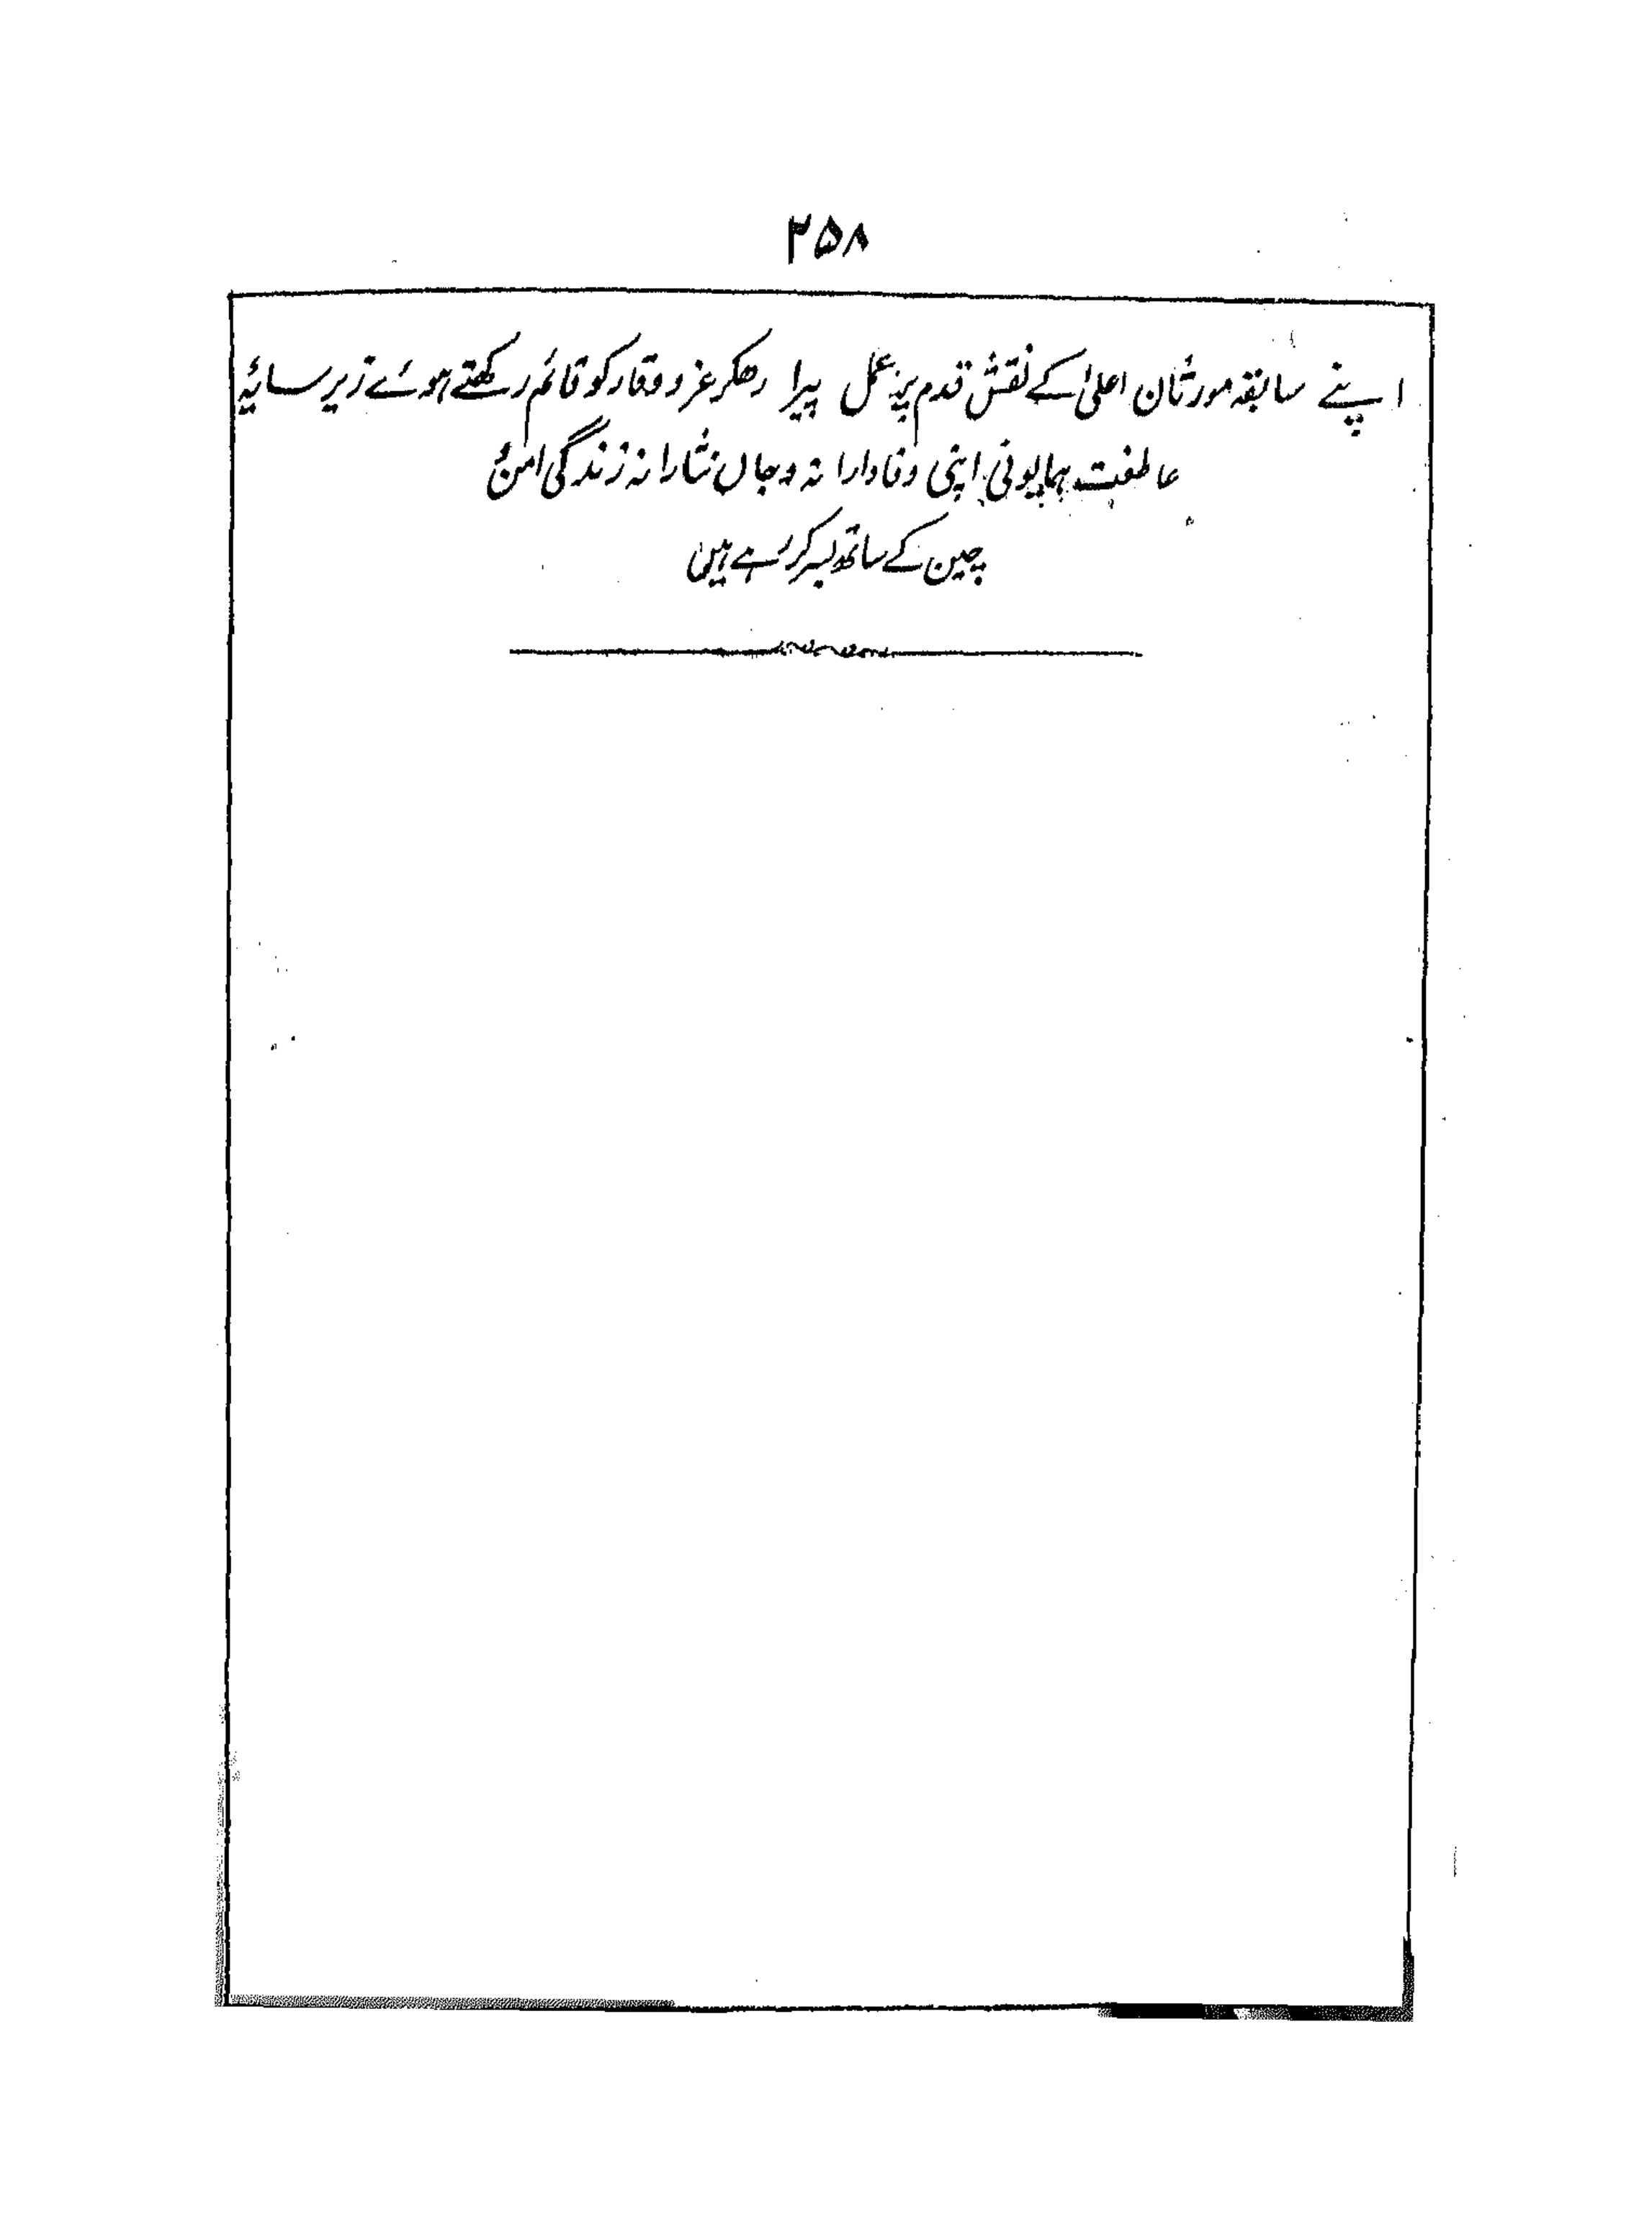 ۲۵۸
اپنے سابقہ مورثان اعلیٰ کے نقش قدم پر عمل پیرا رھکر عز و وقار کو قائم رکھتے ہوئے زیر سایۂ
عاطفت ہمایونی اپنی وفادارا نہ و جاں نثارا نہ زندگی امن و
چین کے ساتھ بسر کر رہے ہیں